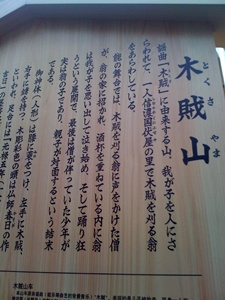 木賊山
とくさやま
謡曲「木賊」に由来する山。我が子を人にさ
らわれて、一人信濃国伏屋の里で木賊を刈る翁
をあらわしている。
能の舞台では、木賊を刈る翁に声をかけた僧
が、翁の家に招かれ、酒杯を重ねている内に翁
は我が子を思い出して泣き始め、そして踊り狂
うという展開で、最後は僧が伴っていた少年が
実は翁の子であり、親子が対面するという結末
である。
御神体（人形）は腰に蓑をつけ、左手に木賊、
右手に鎌を持つ。木彫彩色の頭は仏師春日の作
といわれ、足台には「元禄五年
木賊山